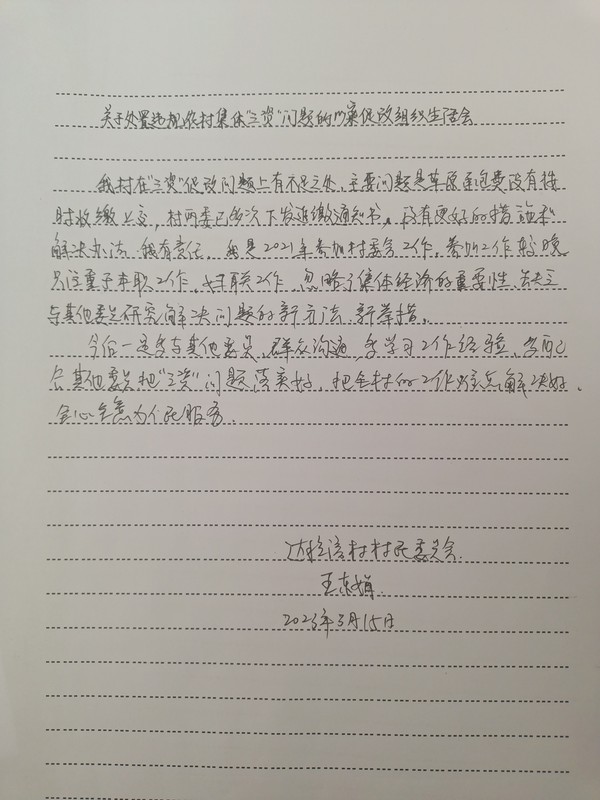 关于处置违规农村集体“三资”问题的以案促改组织生活会
我村在“三资”促改问题上有不足之处，主要问题是草原承包费没有按
时收缴上交，村两委已多次下发追缴通知书，没有更好的措施和
解决办法，我有责任，我是2021年参加村委会工作，参加工作较晚，
只注重于本职工作，妇联工作，忽略了集体经济的重要性，缺乏
与其他委员研究解决问题的新方法，新举措。
今后一定多与其他委员，群众沟通，多学习工作经验，多配
合其他委员把“三资”问题落实好，把全村的工作难点解决好，
全心全意为人民服务。
村村民委员会
王东娟
2023年3月15日